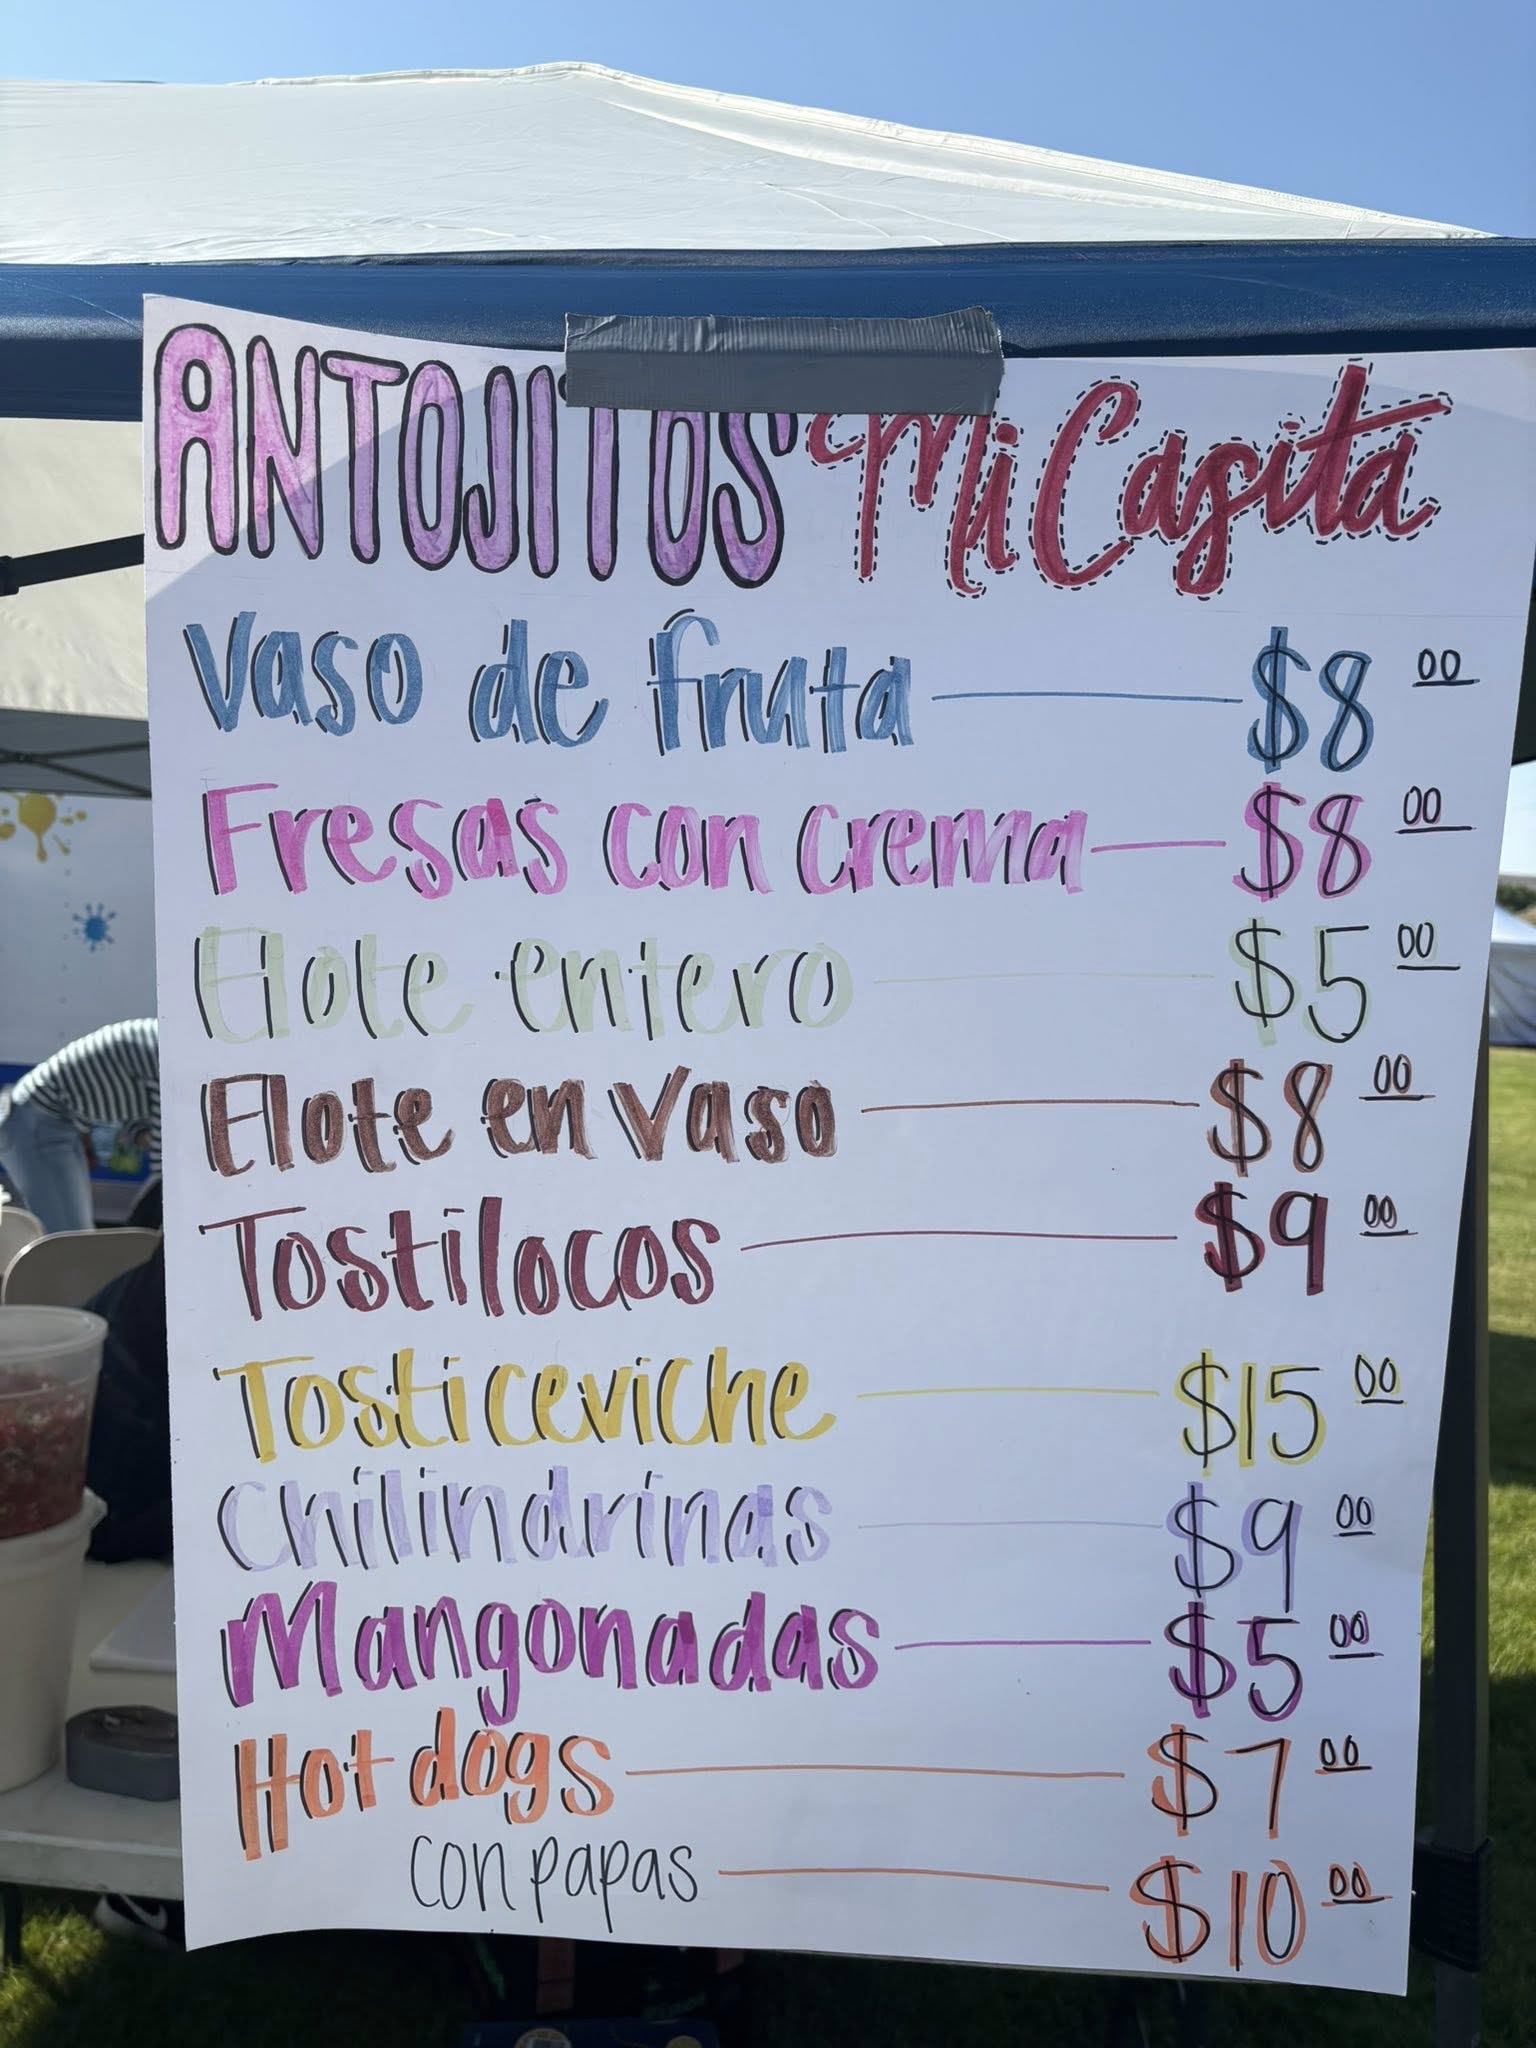 ANTOJITOS Mi Casita
Vaso de fruta $8 00
Fresas con crema $8 00
Elote entero $5 00
Elote en vaso $8 00
Tostilocos $9 00
Tosticeviche $15 00
Chilindrinas $9 00
Mangonadas $5 00
Hot dogs $7 00
con papas $10 00